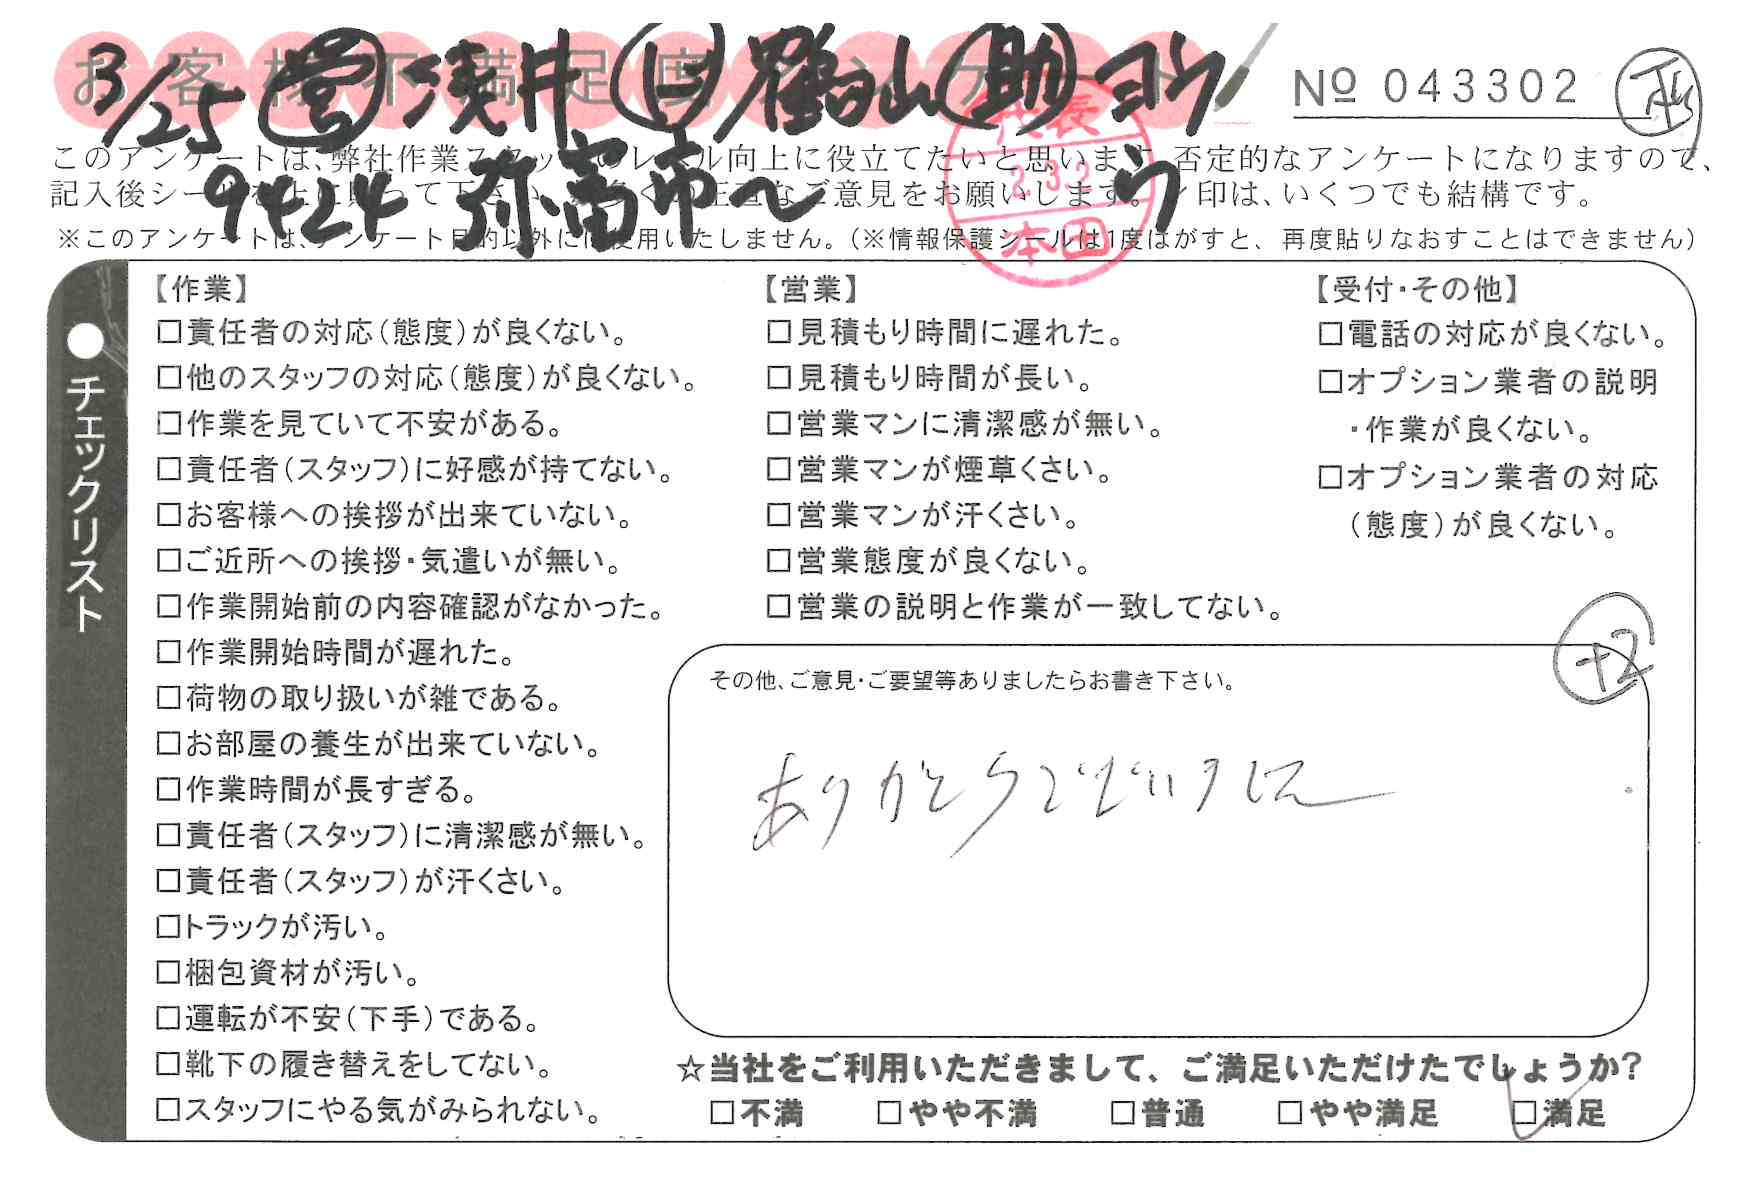 お客様不満足度アンケート
3/25 営 浅井 鶴山 助 ヨシ
№ 043302
9424 弥富市へ
代表
本田
このアンケートは、弊社作業スタッフのレベル向上に役立てたいと思います。否定的なアンケートになりますので、
記入後シールを上に貼って下さい。 正直なご意見をお願いします。 印は、いくつでも結構です。
※このアンケートは、アンケート目的以外には使用いたしません。（※情報保護シールは1度はがすと、再度貼りなおすことはできません）
●チェックリスト
【作業】
□責任者の対応（態度）が良くない。
□他のスタッフの対応（態度）が良くない。
□作業を見ていて不安がある。
□責任者（スタッフ）に好感が持てない。
□お客様への挨拶が出来ていない。
□ご近所への挨拶・気遣いが無い。
□作業開始前の内容確認がなかった。
□作業開始時間が遅れた。
□荷物の取り扱いが雑である。
□お部屋の養生が出来ていない。
□作業時間が長すぎる。
□責任者（スタッフ）に清潔感が無い。
□責任者（スタッフ）が汗くさい。
□トラックが汚い。
□梱包資材が汚い。
□運転が不安（下手）である。
□靴下の履き替えをしてない。
□スタッフにやる気がみられない。
【営業】
□見積もり時間に遅れた。
□見積もり時間が長い。
□営業マンに清潔感が無い。
□営業マンが煙草くさい。
□営業マンが汗くさい。
□営業態度が良くない。
□営業の説明と作業が一致してない。
【受付・その他】
□電話の対応が良くない。
□オプション業者の説明
・作業が良くない。
□オプション業者の対応
（態度）が良くない。
+2
その他、ご意見・ご要望等ありましたらお書き下さい。
ありがとうございました
☆当社をご利用いただきまして、ご満足いただけたでしょうか？
□不満 □やや不満 □普通 □やや満足 □満足